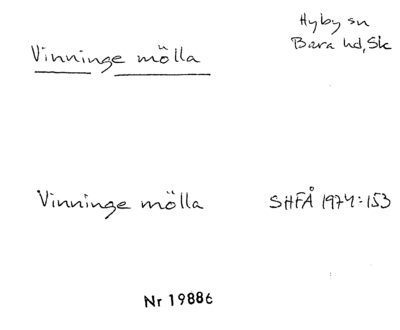 Hyby sn
Vinninge mölla
Bara hd, Sk
Vinninge mölla
SHFÅ 1974:153
Nr 19886